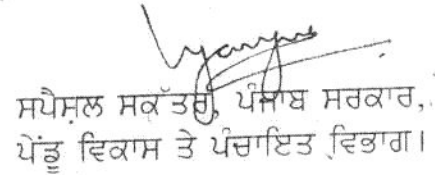 ਸਪੈਸ਼ਲ ਸਕੱਤਰ, ਪੰਜਾਬ ਸਰਕਾਰ,
ਪੇਂਡੂ ਵਿਕਾਸ ਤੇ ਪੰਚਾਇਤ ਵਿਭਾਗ।